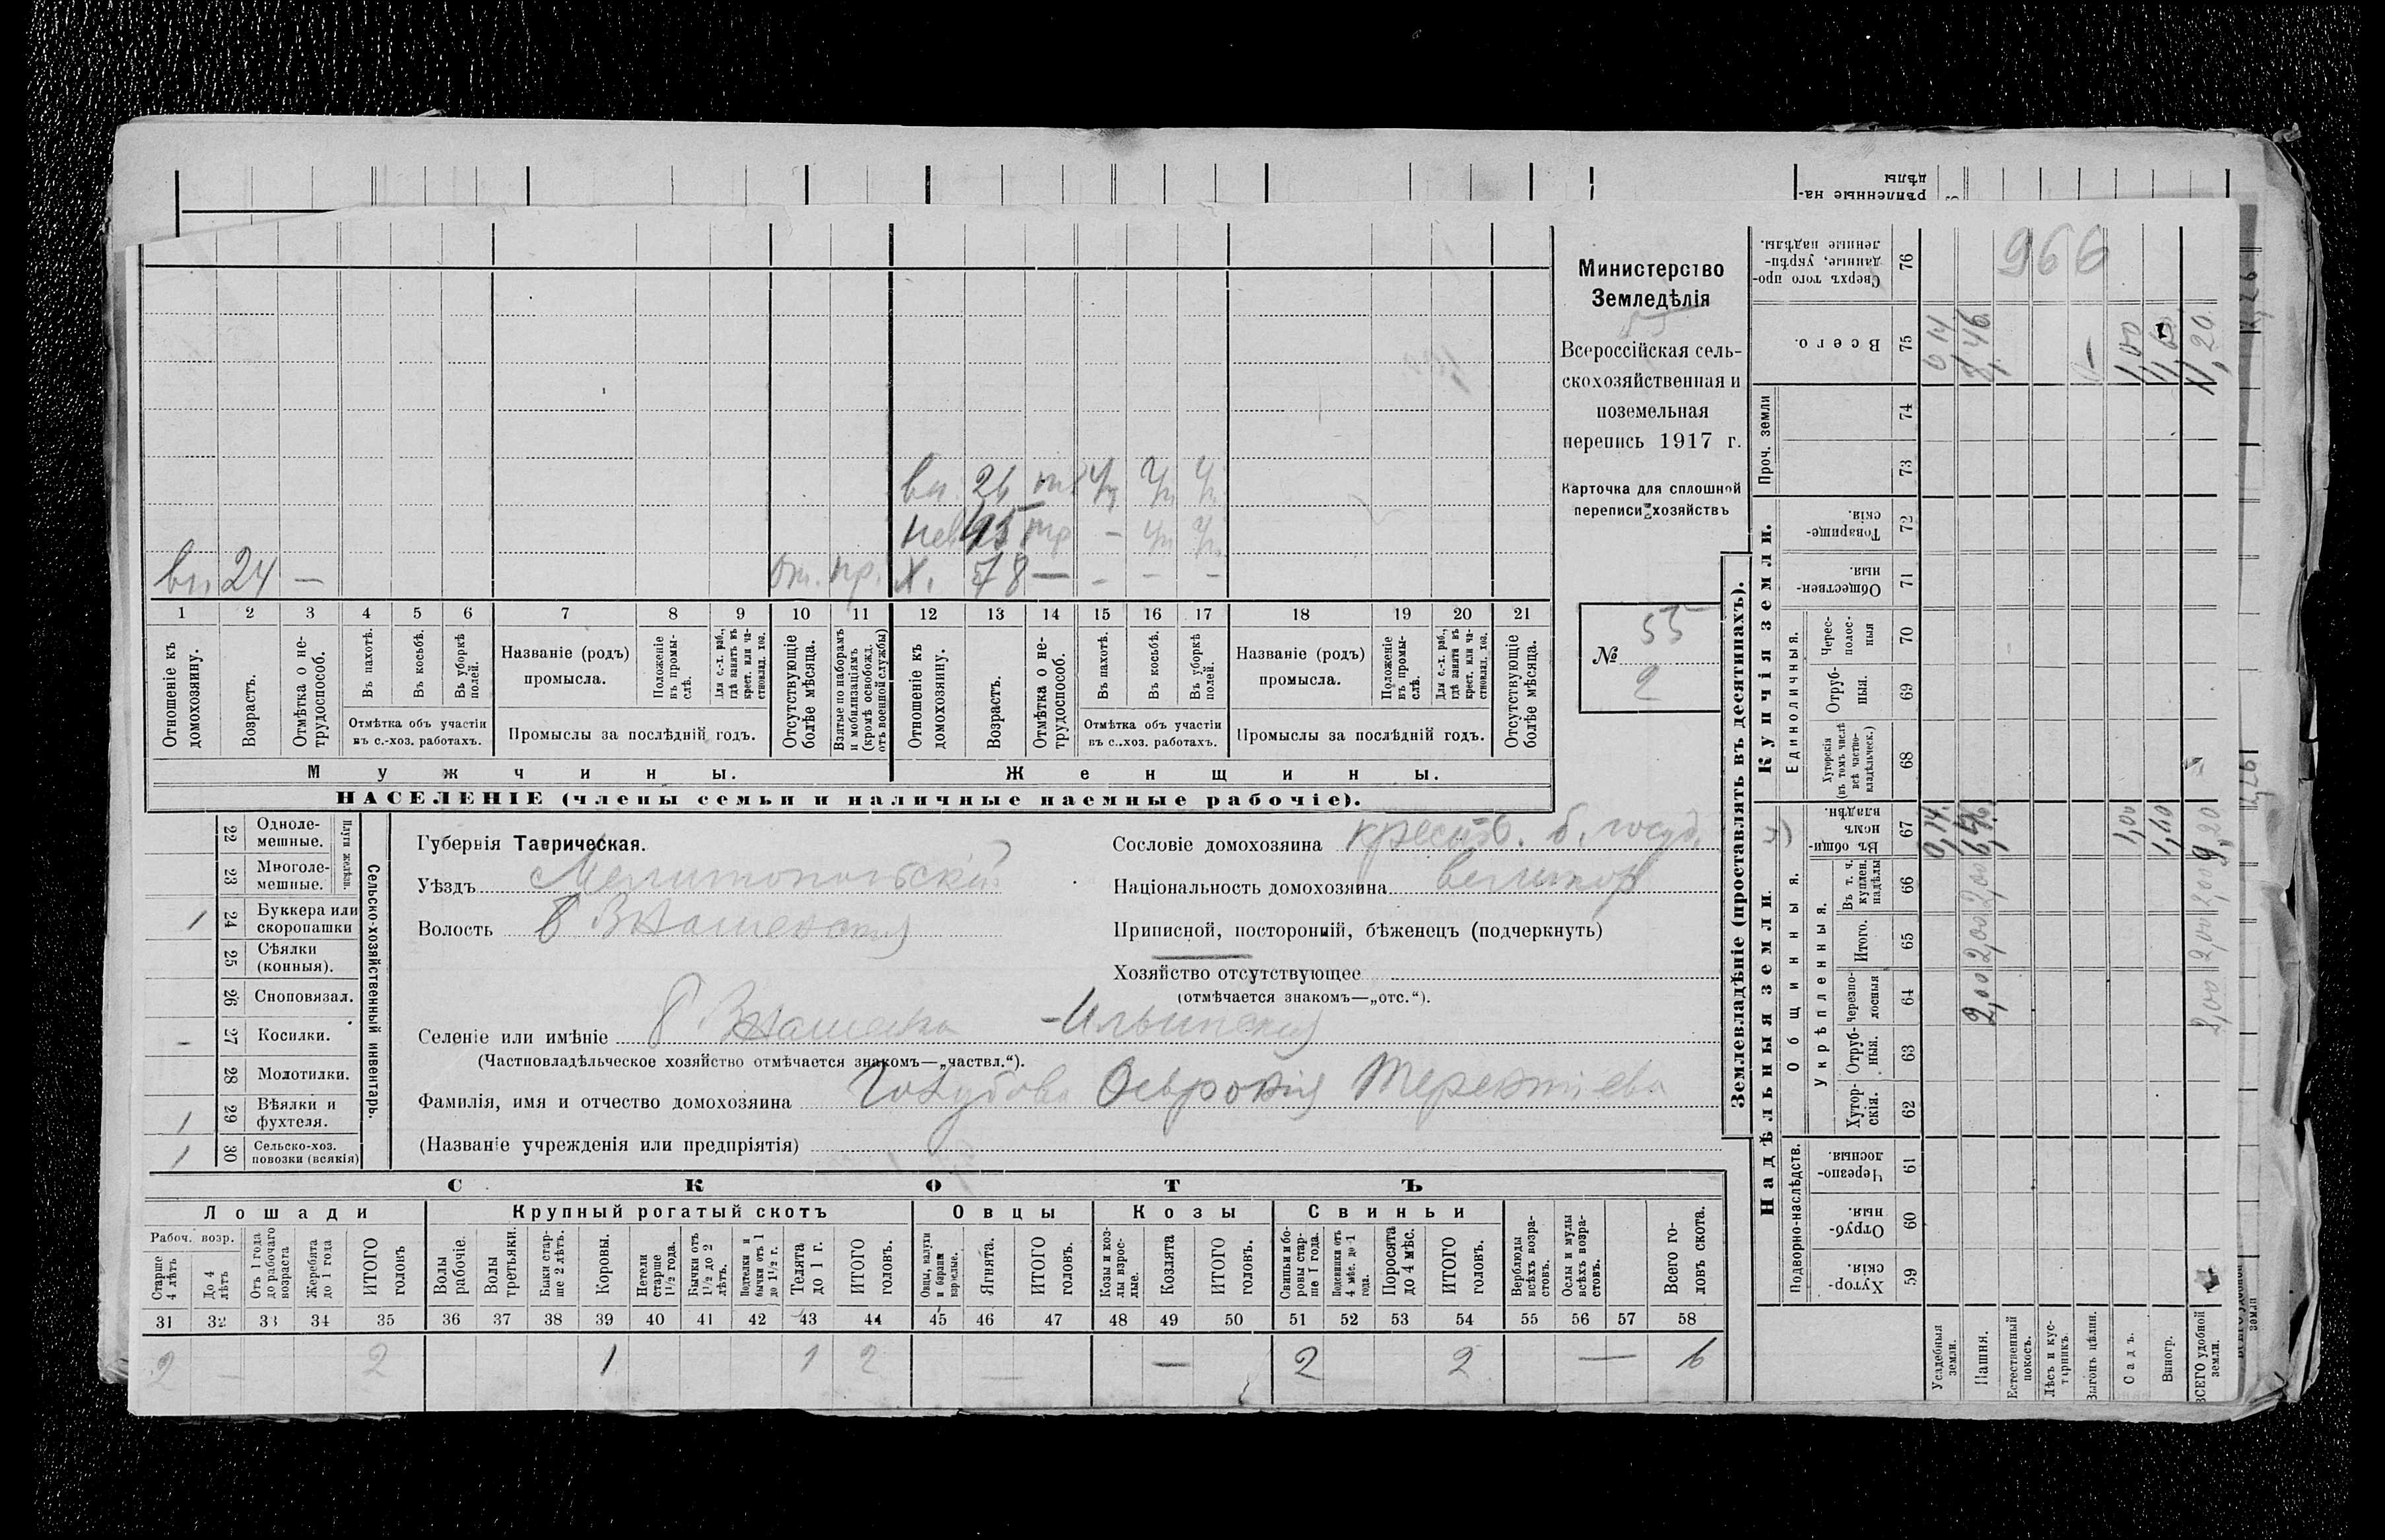 рѣпленные на-
дѣлы
вн. 26 Уч Уч Уч
нев 45 тр - Уч Уч
вн 24 — От. пр. Х. 78 — - - -
1 2 3 4 5 6 7 8 9 10 11 12 13 14 15 16 17 18 19 20 21
Отношеніе къ домохозяину.
Возрастъ.
Отмѣтка о не-трудоспособ.
Въ пахотѣ.
Въ косьбѣ.
Въ уборкѣ полей.
Отмѣтка объ участіи
въ с.-хоз. работахъ.
Названіе (родъ)
промысла.
Положеніе въ промы-слѣ.
Для с.-х. раб., гдѣ занятъ въ крест. или ча-стновлад. хоз.
Промыслы за послѣдній годъ.
Отсутствующіе болѣе мѣсяца.
Взятые по наборамъ и мобилизаціямъ (кромѣ освобожд. отъ военной службы)
Отношеніе къ домохозяину.
Возрастъ.
Отмѣтка о не-трудоспособ.
Въ пахотѣ.
Въ косьбѣ.
Въ уборкѣ полей.
Отмѣтка объ участіи
въ с.-хоз. работахъ.
Названіе (родъ)
промысла.
Положеніе въ промы-слѣ.
Для с.-х. раб., гдѣ занята въ крест. или ча-стновлад. хоз.
Промыслы за послѣдній годъ.
Отсутствующіе болѣе мѣсяца.
Мужчины.
Женщины.
НАСЕЛЕНІЕ (члены семьи и наличные наемные рабочіе).
Министерство
Земледѣлія
Всероссійская сель-
скохозяйственная и
поземельная
перепись 1917 г.
Карточка для сплошной
переписи хозяйствъ
55
№
2
22 Одноле-мешные.
23 Многоле-мешные.
Плуги желѣзн.
1 24 Буккера или скоропашки
25 Сѣялки (конныя).
26 Сноповязал.
- 27 Косилки.
28 Молотилки.
1 29 Вѣялки и фухтеля.
1 30 Сельско-хоз. повозки (всякія)
Сельско-хозяйственный инвентарь.
Губернія Таврическая.
Уѣздъ Мелитопольскій
Волость Б Знаменская
Селеніе или имѣніе Б Знаменка - Ильинская
(Частновладѣльческое хозяйство отмѣчается знакомъ—„частвл.“).
Фамилія, имя и отчество домохозяина Голубова Терентіева
(Названіе учрежденія или предпріятія)
Сословіе домохозяина крестьян. б. госуд.
Національность домохозяина великор
Приписной, посторонній, бѣженецъ (подчеркнуть)
Хозяйство отсутствующее
(отмѣчается знакомъ—„отс.“).
СКОТЪ
Лошади
Крупный рогатый скотъ
Овцы
Козы
Свиньи
Рабоч. возр.
Старше 4 лѣтъ
До 4 лѣтъ
Отъ 1 года до рабочаго возраста
Жеребята до 1 года
ИТОГО головъ
Волы рабочіе.
Волы третьяки.
Быки стар-ше 2 лѣтъ.
Коровы.
Нетели старше 1½ года.
Бычки отъ 1½ до 2 лѣтъ.
Подтелки и бычки отъ 1 до 1½ г.
Телята до 1 г.
ИТОГО головъ.
Овцы, валухи и бараны взрослые.
Ягнята.
ИТОГО головъ.
Козы и коз-лы взрос-лые.
Козлята
ИТОГО головъ.
Свиньи и бо-ровы стар-ше 1 года.
Подсвинки отъ 4 мѣс. до 1 года.
Поросята до 4 мѣс.
ИТОГО головъ.
Верблюды всѣхъ возра-стовъ.
Ослы и мулы всѣхъ возра-стовъ.
Всего го-ловъ скота.
31 32 33 34 35 36 37 38 39 40 41 42 43 44 45 46 47 48 49 50 51 52 53 54 55 56 57 58
2 — 2 1 1 2 — — 2 2 — 6
Землевладѣніе (проставлять въ десятинахъ).
Надѣльныя земли.
Купчія земли.
Проч. земли
Подворно-наслѣдств.
Общинныя.
Укрѣпленныя.
Единоличныя.
59 Хутор-скія.
60 Отруб-ныя.
61 Черезпо-лосныя.
62 Хутор-скія.
63 Отруб-ныя.
64 Черезпо-лосныя
65 Итого.
66 Въ т. ч. куплен. надѣлы
67 Въ общин-номъ владѣн.
68 Хуторскія (въ томъ числѣ всѣ частно-владѣльческ.)
69 Отруб-ныя.
70 Черес-полос-ныя
71 Обществен-ныя.
72 Товарище-скія.
73
74
75 Всего.
76 Сверхъ того про-данные, укрѣп-ленные надѣлы.
966
Усадебныя земли. 0,14 0 14
Пашня. 2,00 2,00 2,00 8,46
Естественный покосъ.
Лѣсъ и кус-тарникъ.
Выгонъ цѣлин. —
Садъ. 1,00 1,00
Виногр. 1,60 1,60
ВСЕГО удобной земли. 2,00 2,00 2,00 9,20 11,20